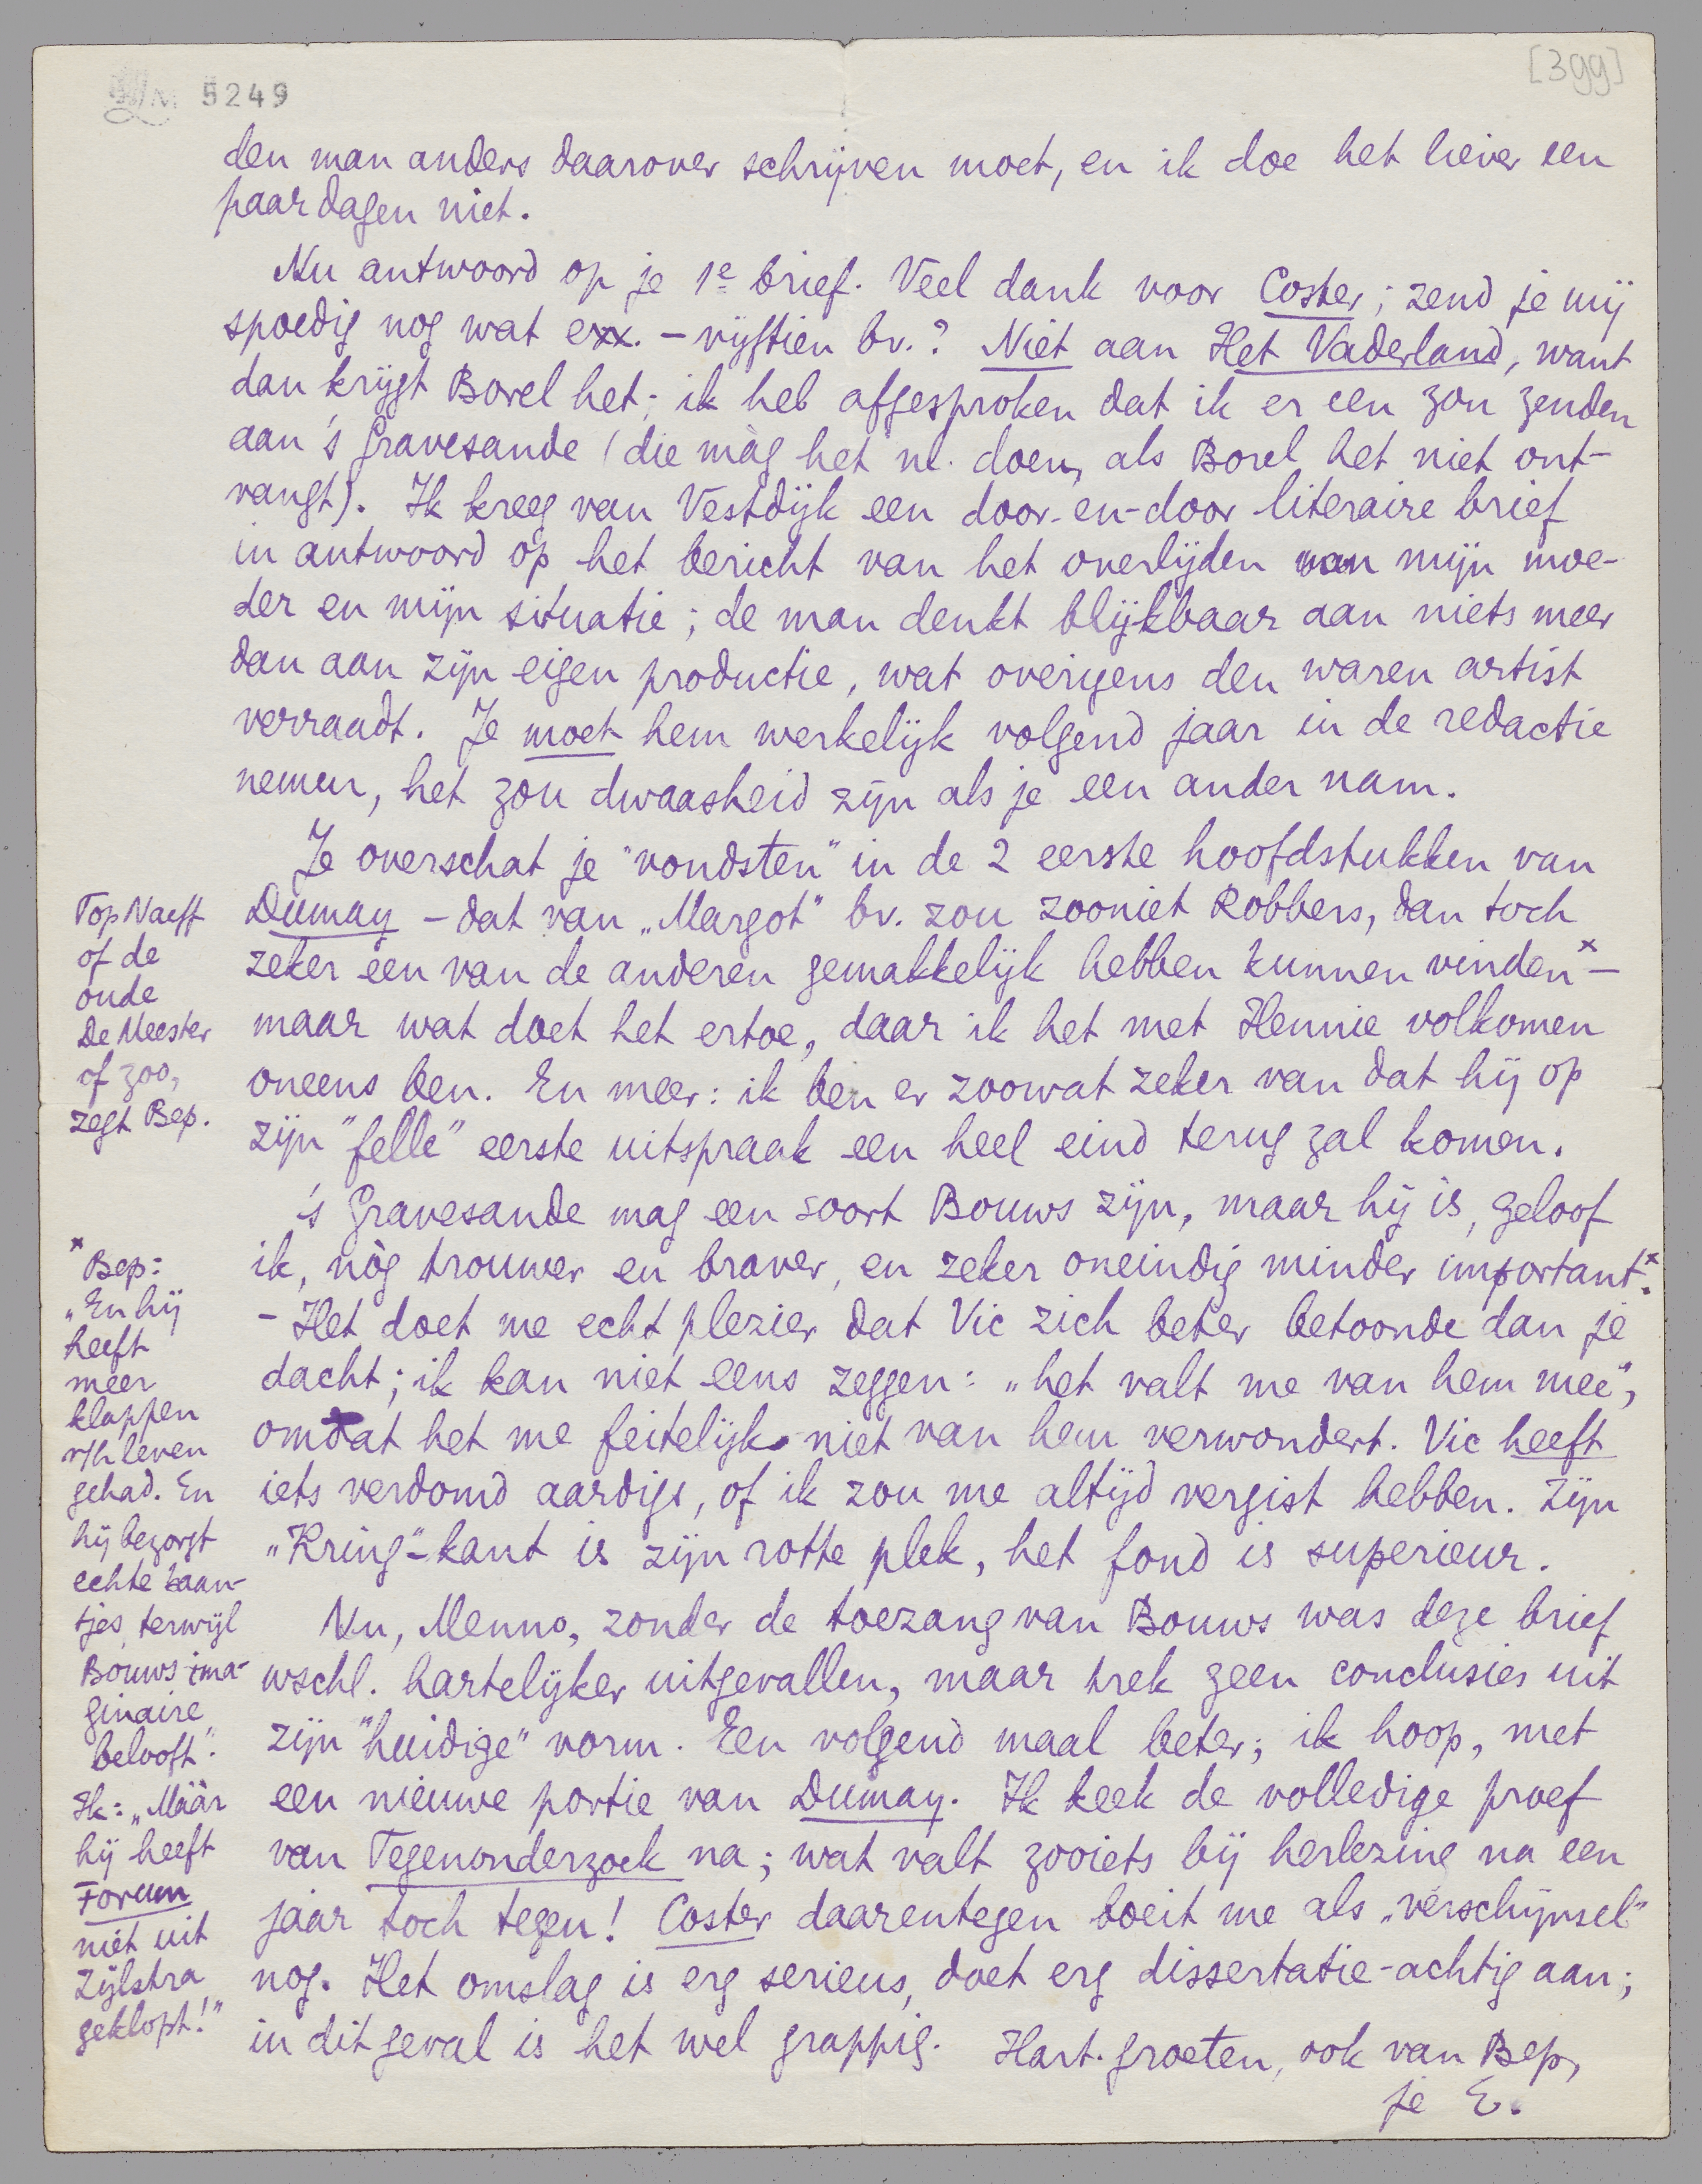 LM 5249
[399]
den man anders daarover schrijven moet, en ik doe het liever een
paar dagen niet.
Nu antwoord op je 1e brief. Veel dank voor Coster; zend je mij
spoedig nog wat exx. – vijftien bv.? Niet aan Het Vaderland, want
dan krijgt Borel het; ik heb afgesproken dat ik er een zou zenden
aan 's Gravesande (die màg het nl. doen, als Borel het niet ont-
vangt). Ik kreeg van Vestdijk een door-en-door literaire brief
in antwoord op het bericht van het overlijden van mijn moe-
der en mijn situatie; de man denkt blijkbaar aan niets meer
dan aan zijn eigen productie, wat overigens den waren artist
verraadt. Je moet hem werkelijk volgend jaar in de redactie
nemen, het zou dwaasheid zijn als je een ander nam.
Je overschat je "vondsten" in de 2 eerste hoofdstukken van
Dumay – dat van „Margot" bv. zou zooniet Robbers, dan toch
zeker één van de anderen gemakkelijk hebben kunnen vinden x –
maar wat doet het ertoe, daar ik het met Hennie volkomen
oneens ben. En meer: ik ben er zoowat zeker van dat hij op
zijn "felle" eerste uitspraak een heel eind terug zal komen.
's Gravesande mag een soort Bouws zijn, maar hij is, geloof
ik, nòg trouwer en braver, en zeker oneindig minder important. x
– Het doet me echt plezier dat Vic zich beter betoonde dan je
dacht; ik kan niet eens zeggen: „het valt me van hem mee",
omdat het me feitelijk niet van hem verwondert. Vic heeft
iets verdomd aardigs, of ik zou me altijd vergist hebben. Zijn
„Kring"-kant is zijn rotte plek, het fond is superieur.
Nu, Menno, zonder de toezang van Bouws was deze brief
wschl. hartelijker uitgevallen, maar trek geen conclusies uit
zijn "huidige" vorm. Een volgend maal beter; ik hoop, met
een nieuwe portie van Dumay. Ik keek de volledige proef
van Tegenonderzoek na; wat valt zooiets bij herlezing na een
jaar toch tegen! Coster daarentegen boeit me als „verschijnsel"
nog. Het omslag is erg serieus, doet erg dissertatie-achtig aan;
in dit geval is het wel grappig. Hart. groeten, ook van Bep,
je E.
Top Naeff
of de
oude
De Meester
of zoo,
zegt Bep.
x Bep:
„En hij
heeft
meer
klappen
v/h leven
gehad. En
hij bezorgt
echte baan-
tjes, terwijl
Bouws ima-
ginaire
belooft".
Ik: „Máár
hij heeft
Forum
niet uit
Zijlstra
geklopt!"